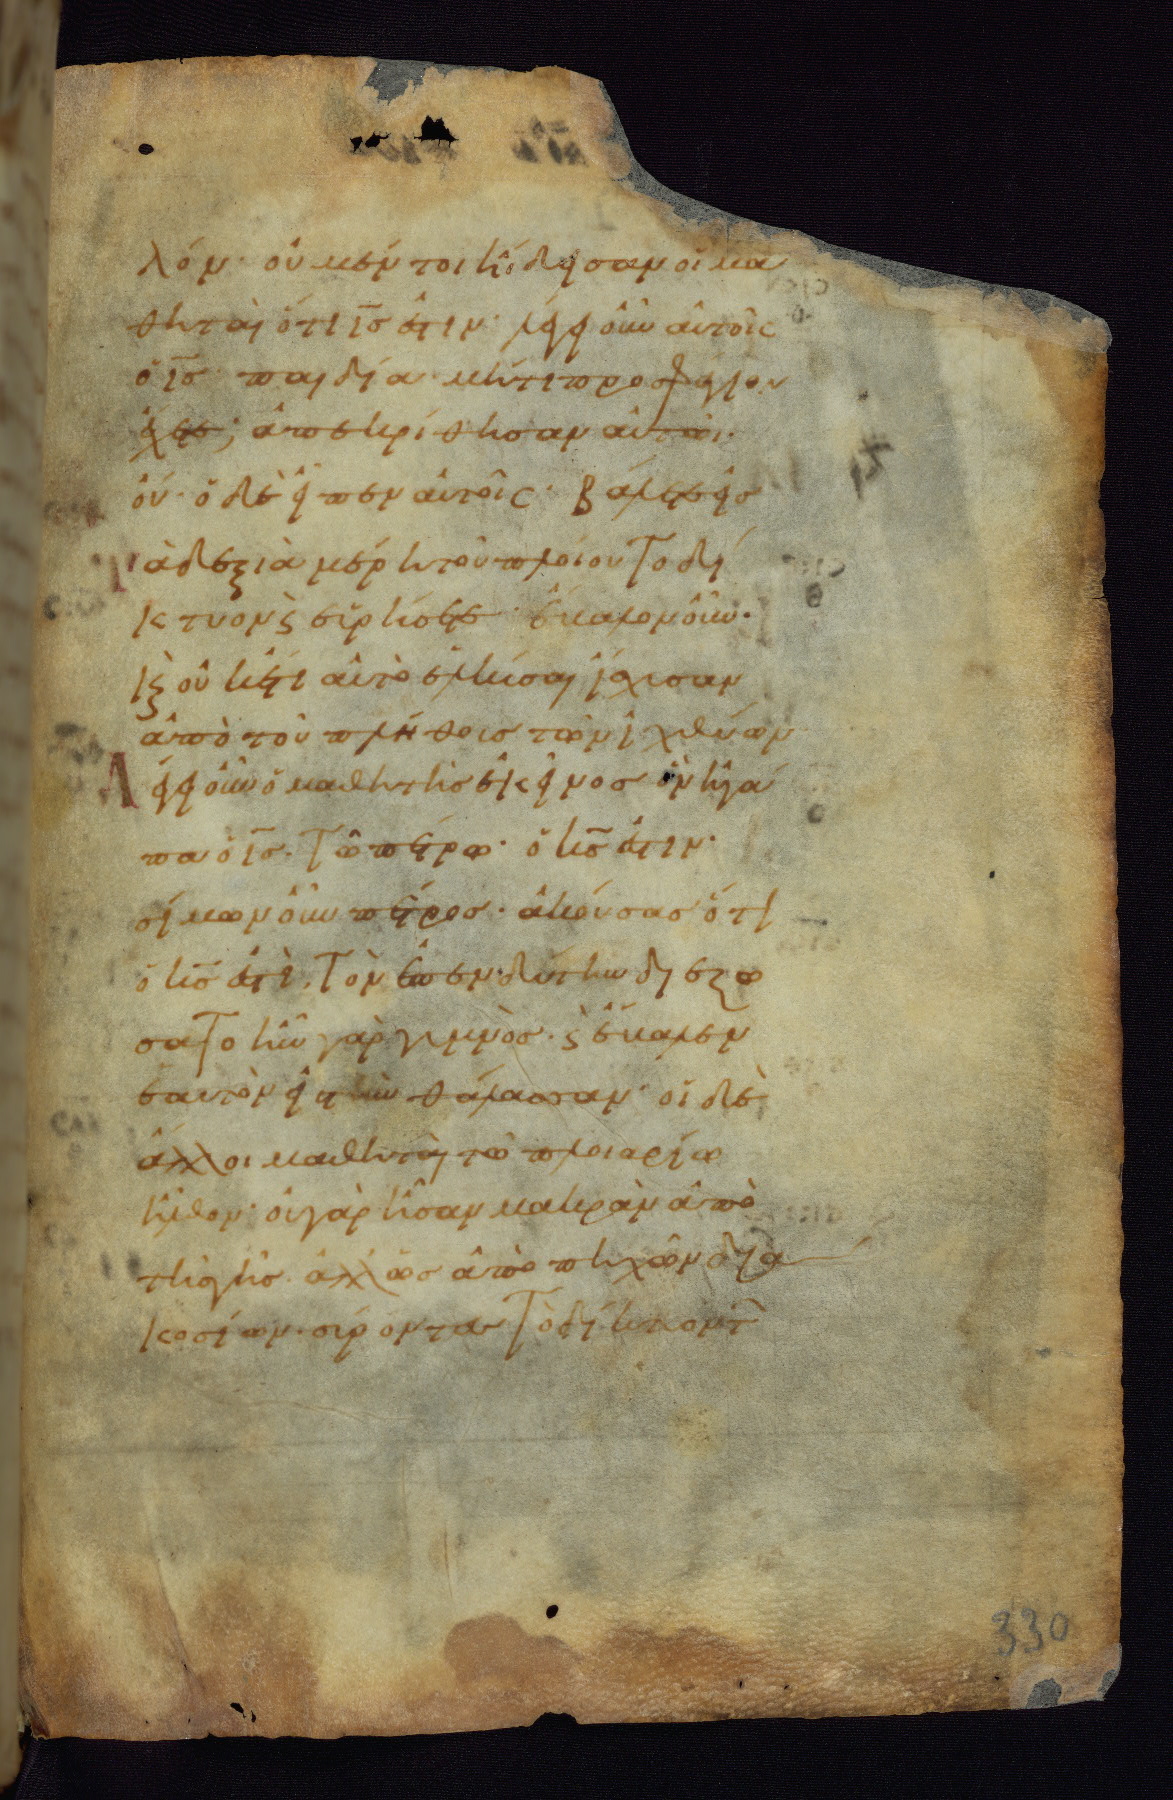 λόν· οὐ μέντοι ἤδεισαν οἱ μα
θηταὶ ὅτι ἰς ἐστιν· λέγει οὖν αὐτοῖς
ὁ ἰς· παιδία· μή τι προσφάγιον
ἔχετε; ἀπεκρίθησαν αὐτῶι·
οὔ· ὁ δὲ εἶπεν αὐτοῖς· βάλετε εἰς
τὰ δεξιὰ μέρη τοῦ πλοίου τὸ δί
κτυον ϗ εὑρήσετε· ἔβαλον οὖν·
ϗ οὐκέτι αὐτὸ ἑλκύσαι ἴσχυσαν
ἀπὸ τοῦ πλήθους τῶν ἰχθύων
Λέγει οὖν ὁ μαθητὴς ἐκεῖνος ὃν ἠγά
πα ὁ ἰς· τῶ πέτρω· ὁ κς ἐστιν·
σίμων οὖν πέτρος· ἀκούσας ὅτι
ὁ κς ἐστὶ, τὸν ἐπενδύτην διεζώ
σατο ἦν γὰρ γυμνὸς· ϗ ἔβαλεν
ἑαυτὸν εἰς τὴν θάλασσαν· οἱ δὲ
ἄλλοι μαθηταὶ τῶ πλοιαρίω
ἦλθον· οὐ γὰρ ἦσαν μακρὰν ἀπὸ
τῆς γῆς· ἀλλ' ὡς ἀπὸ πηχῶν δια
κοσίων· σύροντες τὸ δίκτυον τ
330